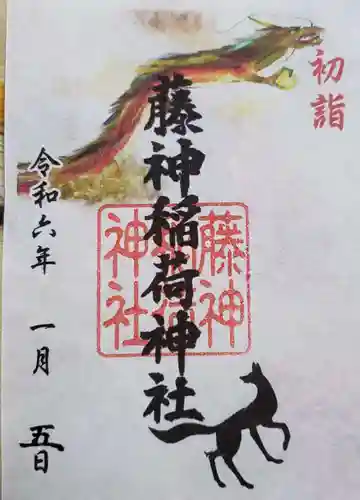 初詣
藤神稲荷神社
藤神稲荷神社
令和六年 一月 五日